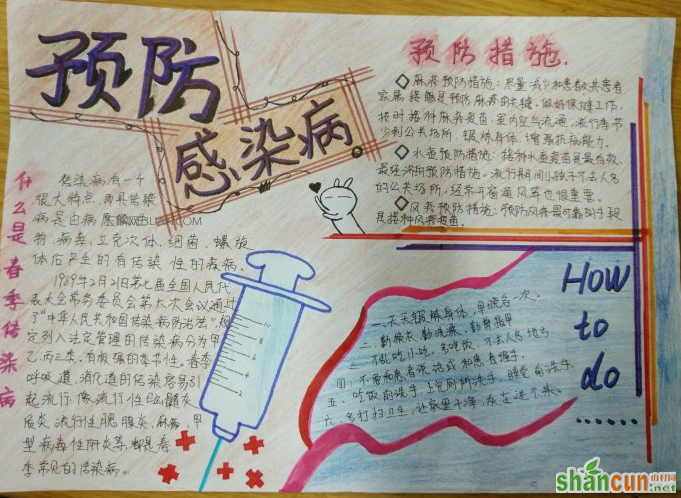 预防
感染病
什么是春季传染病
传染病有一个
很大特点，需具传染
病是由病原
物，病毒，立克次体，细菌，螺旋
体后产生的有传染性的疾病。
1989年2月21日第七届全国人民代
表大会常务委员会第六次会议通过
了“中华人民共和国传染病防治法”规
定列入法定管理的传染病分为甲
乙，丙三类，有极强的季节性。春季
呼吸道，消化道的传染容易引
起流行像流行性脑髓炎
流行性腮腺炎，麻疹，甲
型病毒性肝炎等都是春
季常见的传染病。
预防措施.
麻疹预防措施：尽量减少和患者及共患者
家属接触是预防麻疹的关键，做好保健工作，
按时接种麻疹疫苗，室内空气流通，流行季节
少到公共场所，锻炼身体，增强抗病能力。
水痘预防措施：接种水痘疫苗是最有效、
最经济的预防措施。流行期间小孩子不去人多
的公共场所，经常开窗通风等也很重要。
风疹预防措施：预防风疹最可靠的手段
是接种风疹疫苗。
How
to
do
......
一、天天锻炼身体，早晚各一次。
二、勤换衣，勤洗澡，勤剪指甲
三、不乱吃小吃，多吃饭，不去人多地方
四、不要和患者说话或和患者握手
五、吃饭前洗手，上完厕所洗手，睡觉前洗手
六、多打扫卫生，让家里干净，灰尘进不来。
shancun
山村网
.net